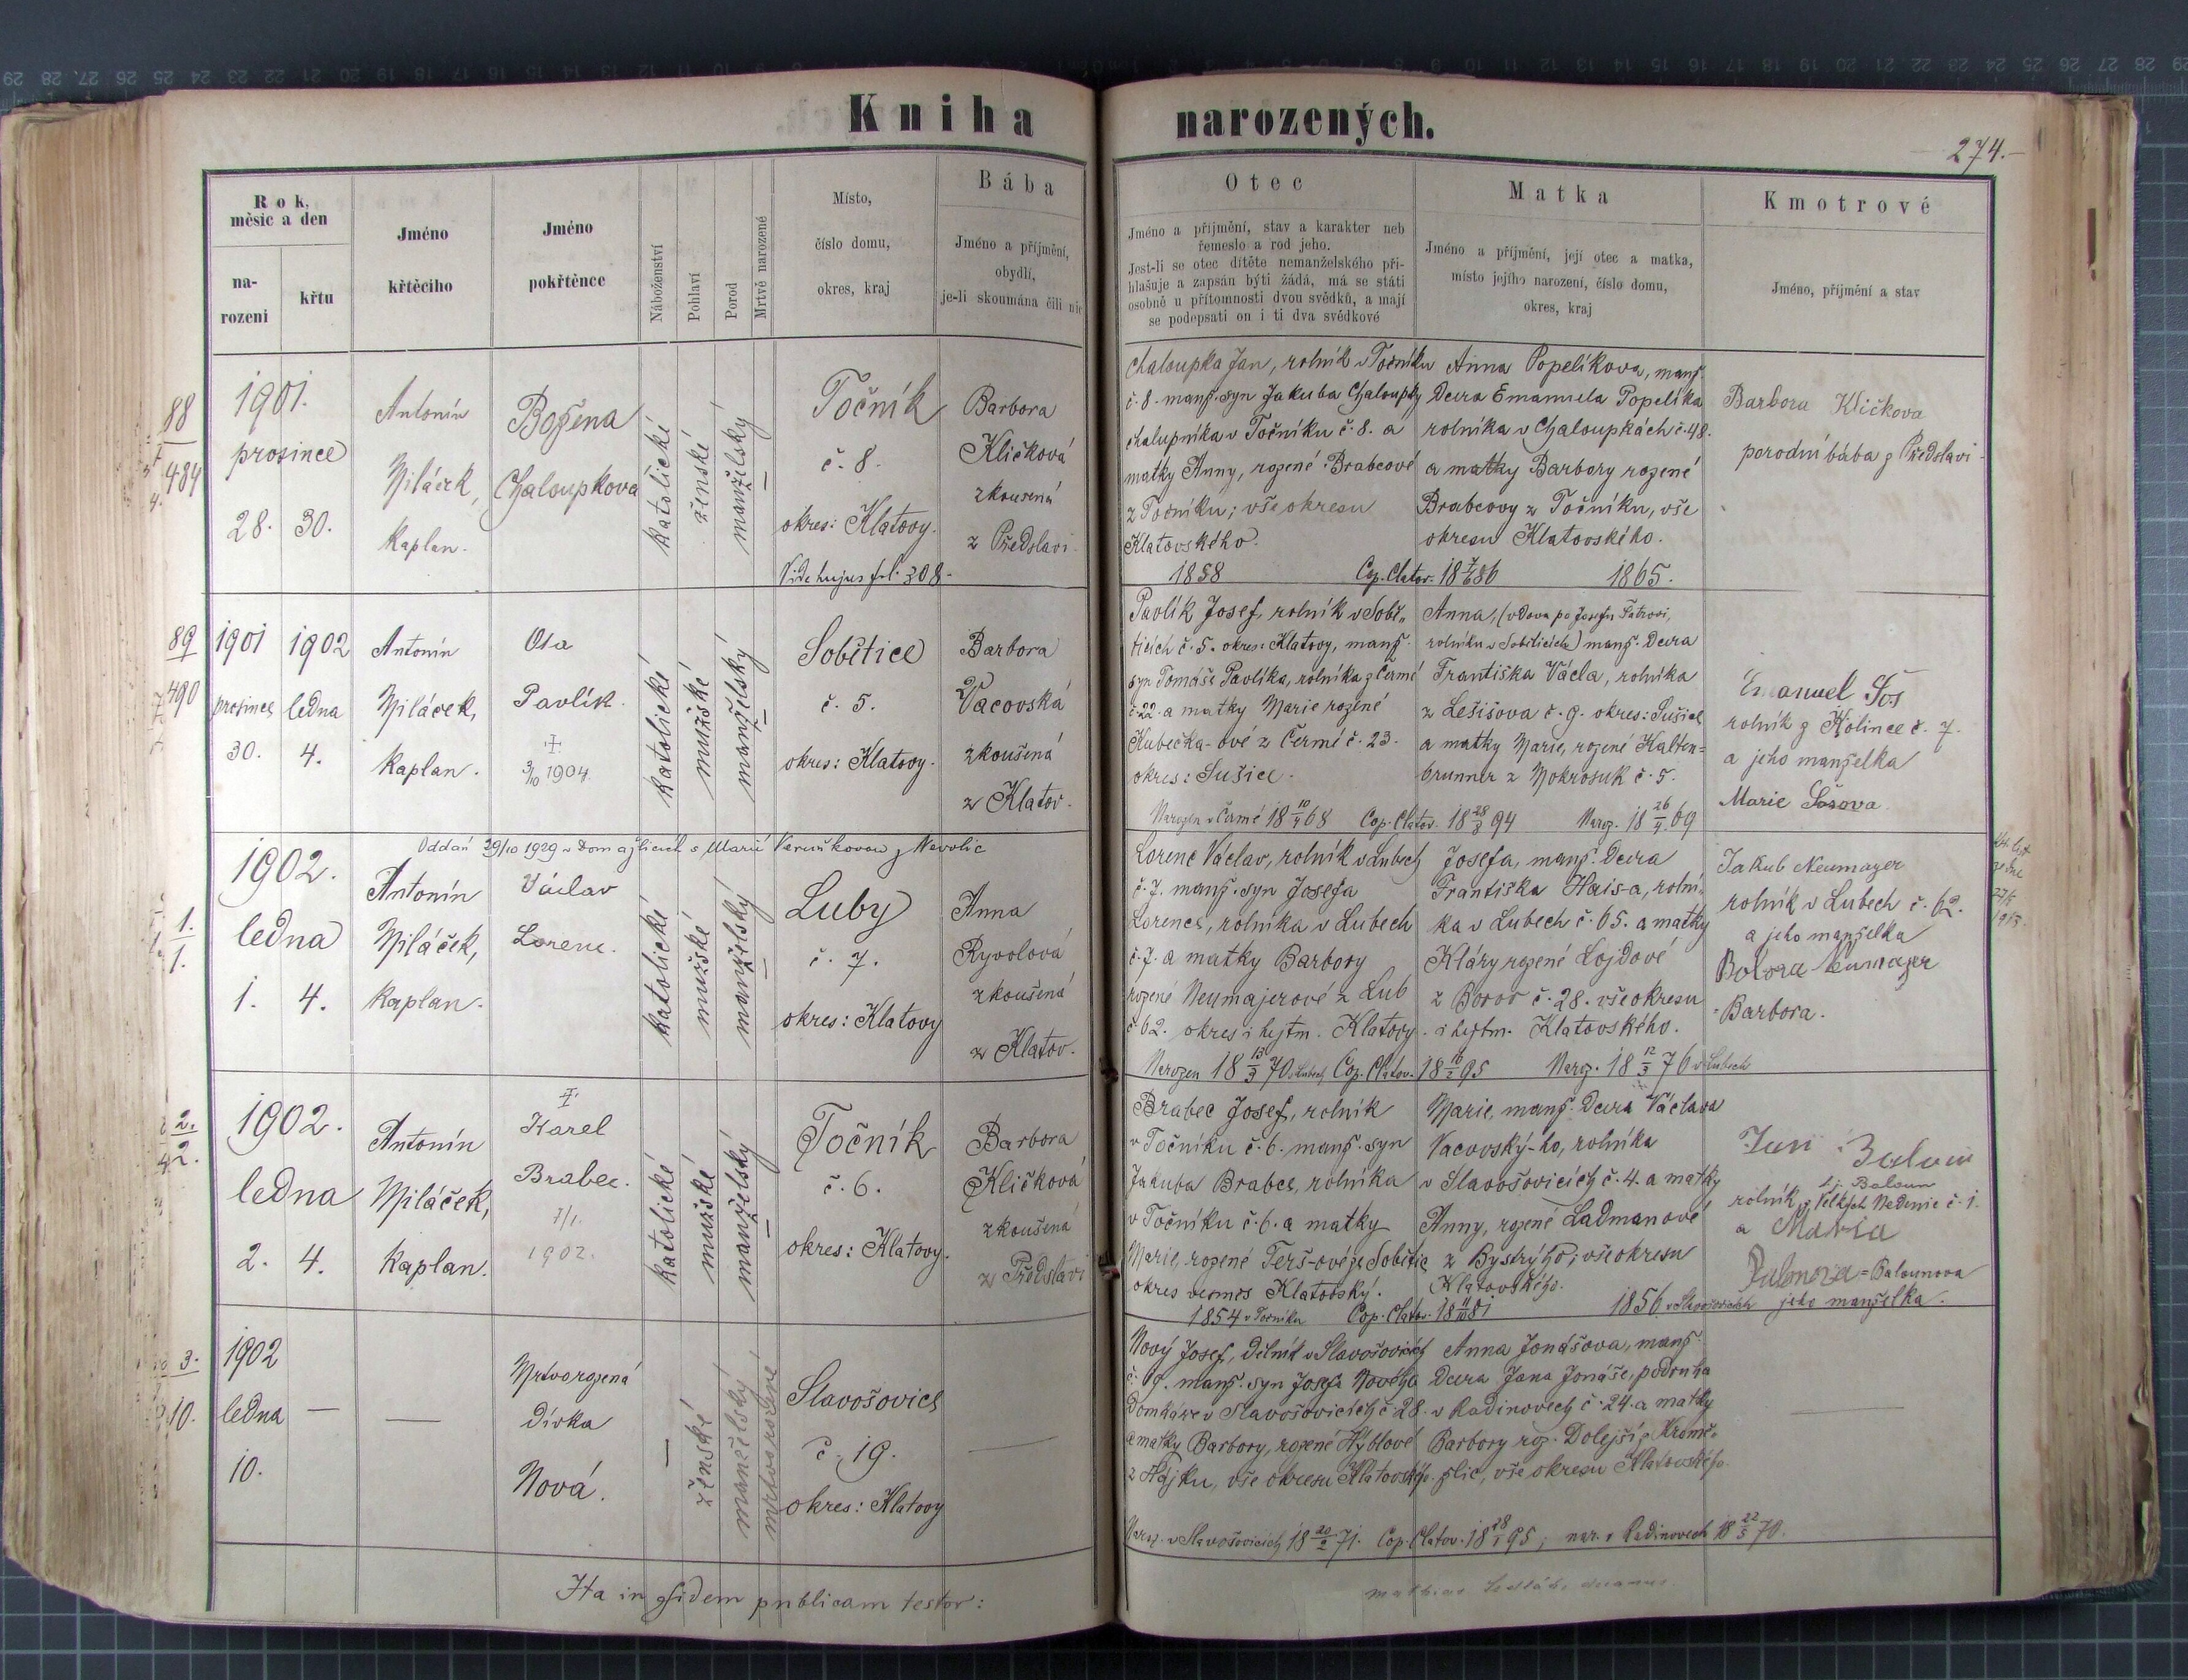 Kniha narozených.
274.
Rok, měsíc a den
na-
rozeni
křtu
Jméno
křtěcího
Jméno
pokřtěnce
Náboženství
Pohlaví
Porod
Mrtvě narozené
Místo,
číslo domu,
okres, kraj
Bába
Jméno a příjmění,
obydlí,
je-li skoumána čili nic
Otec
Jméno a příjmění, stav a karakter neb
řemeslo a rod jeho.
Jest-li se otec dítěte nemanželského při-
hlašuje a zapsán býti žádá, má se státi
osobně u přítomnosti dvou svědků, a mají
se podepsati on i ti dva svědkové
Matka
Jméno a příjmění, její otec a matka,
místo jejího narození, číslo domu,
okres, kraj
Kmotrové
Jméno, příjmění a stav
88
484
1901.
prosince
28. 30.
Antonín
Miláček,
kaplan.
Božena
Chaloupková
katolické
ženské
manželský
—
Točník
č. 8.
okres: Klatovy.
Vide hujus fol. 308.
Barbora
Kličková
zkoušená
z Předslavi
Chaloupka Jan, rolník v Točníku
č. 8. manž. syn Jakuba Chaloupky
chalupníka v Točníku č. 8. a
matky Anny, rozené Brabcové
z Točníku; vše okresu
Klatovského.
1858
Cop. Clatov. 18 86
Anna Popelíkova, manž.
dcera Emanuela Popelíka
rolníka v Chaloupkách č. 48.
a matky Barbory rozené
Brabcovy z Točníku, vše
okresu Klatovského.
1865.
Barbora Kličkova
porodní bába z Předslavi
89
490
1901 1902
prosince ledna
30. 4.
Antonín
Miláček,
kaplan.
Ota
Pavlík.
†
3/10 1904.
katolické
mužské
manželský
—
Sobětice
č. 5.
okres: Klatovy.
Barbora
Vacovská
zkoušená
z Klatov.
Pavlík Josef, rolník v Sobě-
ticích č. 5. okres: Klatovy, manž.
syn Tomáše Pavlíka, rolníka z Čermé
č. 22. a matky Marie rozené
Kubečka-ové z Čermé č. 23.
okres: Sušice.
Narozen v Čermé 18 10/4 68 Cop. Clatov. 18 28/8 94
Anna, (vdova po Josefu Šatrovi,
rolníku v Soběticích) manž. dcera
Františka Václa, rolníka
z Lešišova č. 9. okres: Sušice
a matky Marie, rozené Kalten-
brunner z Mokrosuk č. 5.
Naroz. 18 26/4 69
Emanuel Šos
rolník z Kolince č. 7.
a jeho manželka
Marie Šosova.
Oddán 29/10 1929 v Domažlicích s Marií Veruňkovou z Nevolic
1.
1.
1902.
ledna
1. 4.
Antonín
Miláček,
kaplan.
Václav
Lorenc.
katolické
mužské
manželský
—
Luby
č. 7.
okres: Klatovy
Anna
Ryvolová
zkoušená
z Klatov.
Lorenc Václav, rolník v Lubech
č. 7. manž. syn Josefa
Lorence, rolníka v Lubech
č. 7. a matky Barbory
rozené Neumajerové z Lub
č. 62. okres i hejtm. Klatovy.
Narozen 18 13/9 70 v Lubech Cop. Clatov. 18 16/2 95
Josefa, manž. dcera
Františka Hais-a, rolní-
ka v Lubech č. 65. a matky
Kláry rozené Lojdové
z Borov č. 28. vše okresu
i hejtm. Klatovského.
Naroz. 18 12/3 76 v Lubech
Jakub Neumayer
rolník v Lubech č. 62.
a jeho manželka
Neumajer
Barbora.
2.
2.
1902.
ledna
2. 4.
Antonín
Miláček,
kaplan.
†
Karel
Brabec.
7/1.
1902.
katolické
mužské
manželský
—
Točník
č. 6.
okres: Klatovy.
Barbora
Kličková
zkoušená
z Předslavi
Brabec Josef, rolník
v Točníku č. 6. manž. syn
Jakuba Brabce, rolníka
v Točníku č. 6. a matky
Marie, rozené Terš-ové ze Sobětic
okres vesměs Klatovský.
1854 v Točníku Cop. Clatov. 18 81
Marie, manž. dcera Václava
Vacovský-ho, rolníka
v Slavošovicích č. 4. a matky
Anny, rozené Ladmanové
z Bystrýho; vše okresu
Klatovského.
1856 v Slavošovicích
Jan Baloun
t.j. Baloun
rolník z Velkých Nedanic č. 1.
a Maria
= Balounova
jeho manželka.
3.
10.
1902
ledna —
10.
—
Mrtvorozená
dívka
Nová.
—
ženské
manželský
mrtvorozené
Slavošovice
č. 19.
okres: Klatovy
—
Nový Josef, dělník v Slavošovicích
č. 19. manž. syn Josefa Nového
domkáře v Slavošovicích č. 28.
a matky Barbory, rozené Hyblové
z Hájku, vše okresu Klatovského.
Naroz. v Slavošovicích 18 20/2 71. Cop. Clatov. 18 28/1 95;
Anna Jonášova, manž.
dcera Jana Jonáše, podruha
v Radinovech č. 24. a matky
Barbory roz. Dolejší z Kromě-
žlic, vše okresu Klatovského.
nar. v Radinovech 18 22/5 70.
—
Ita in fidem publicam testor: